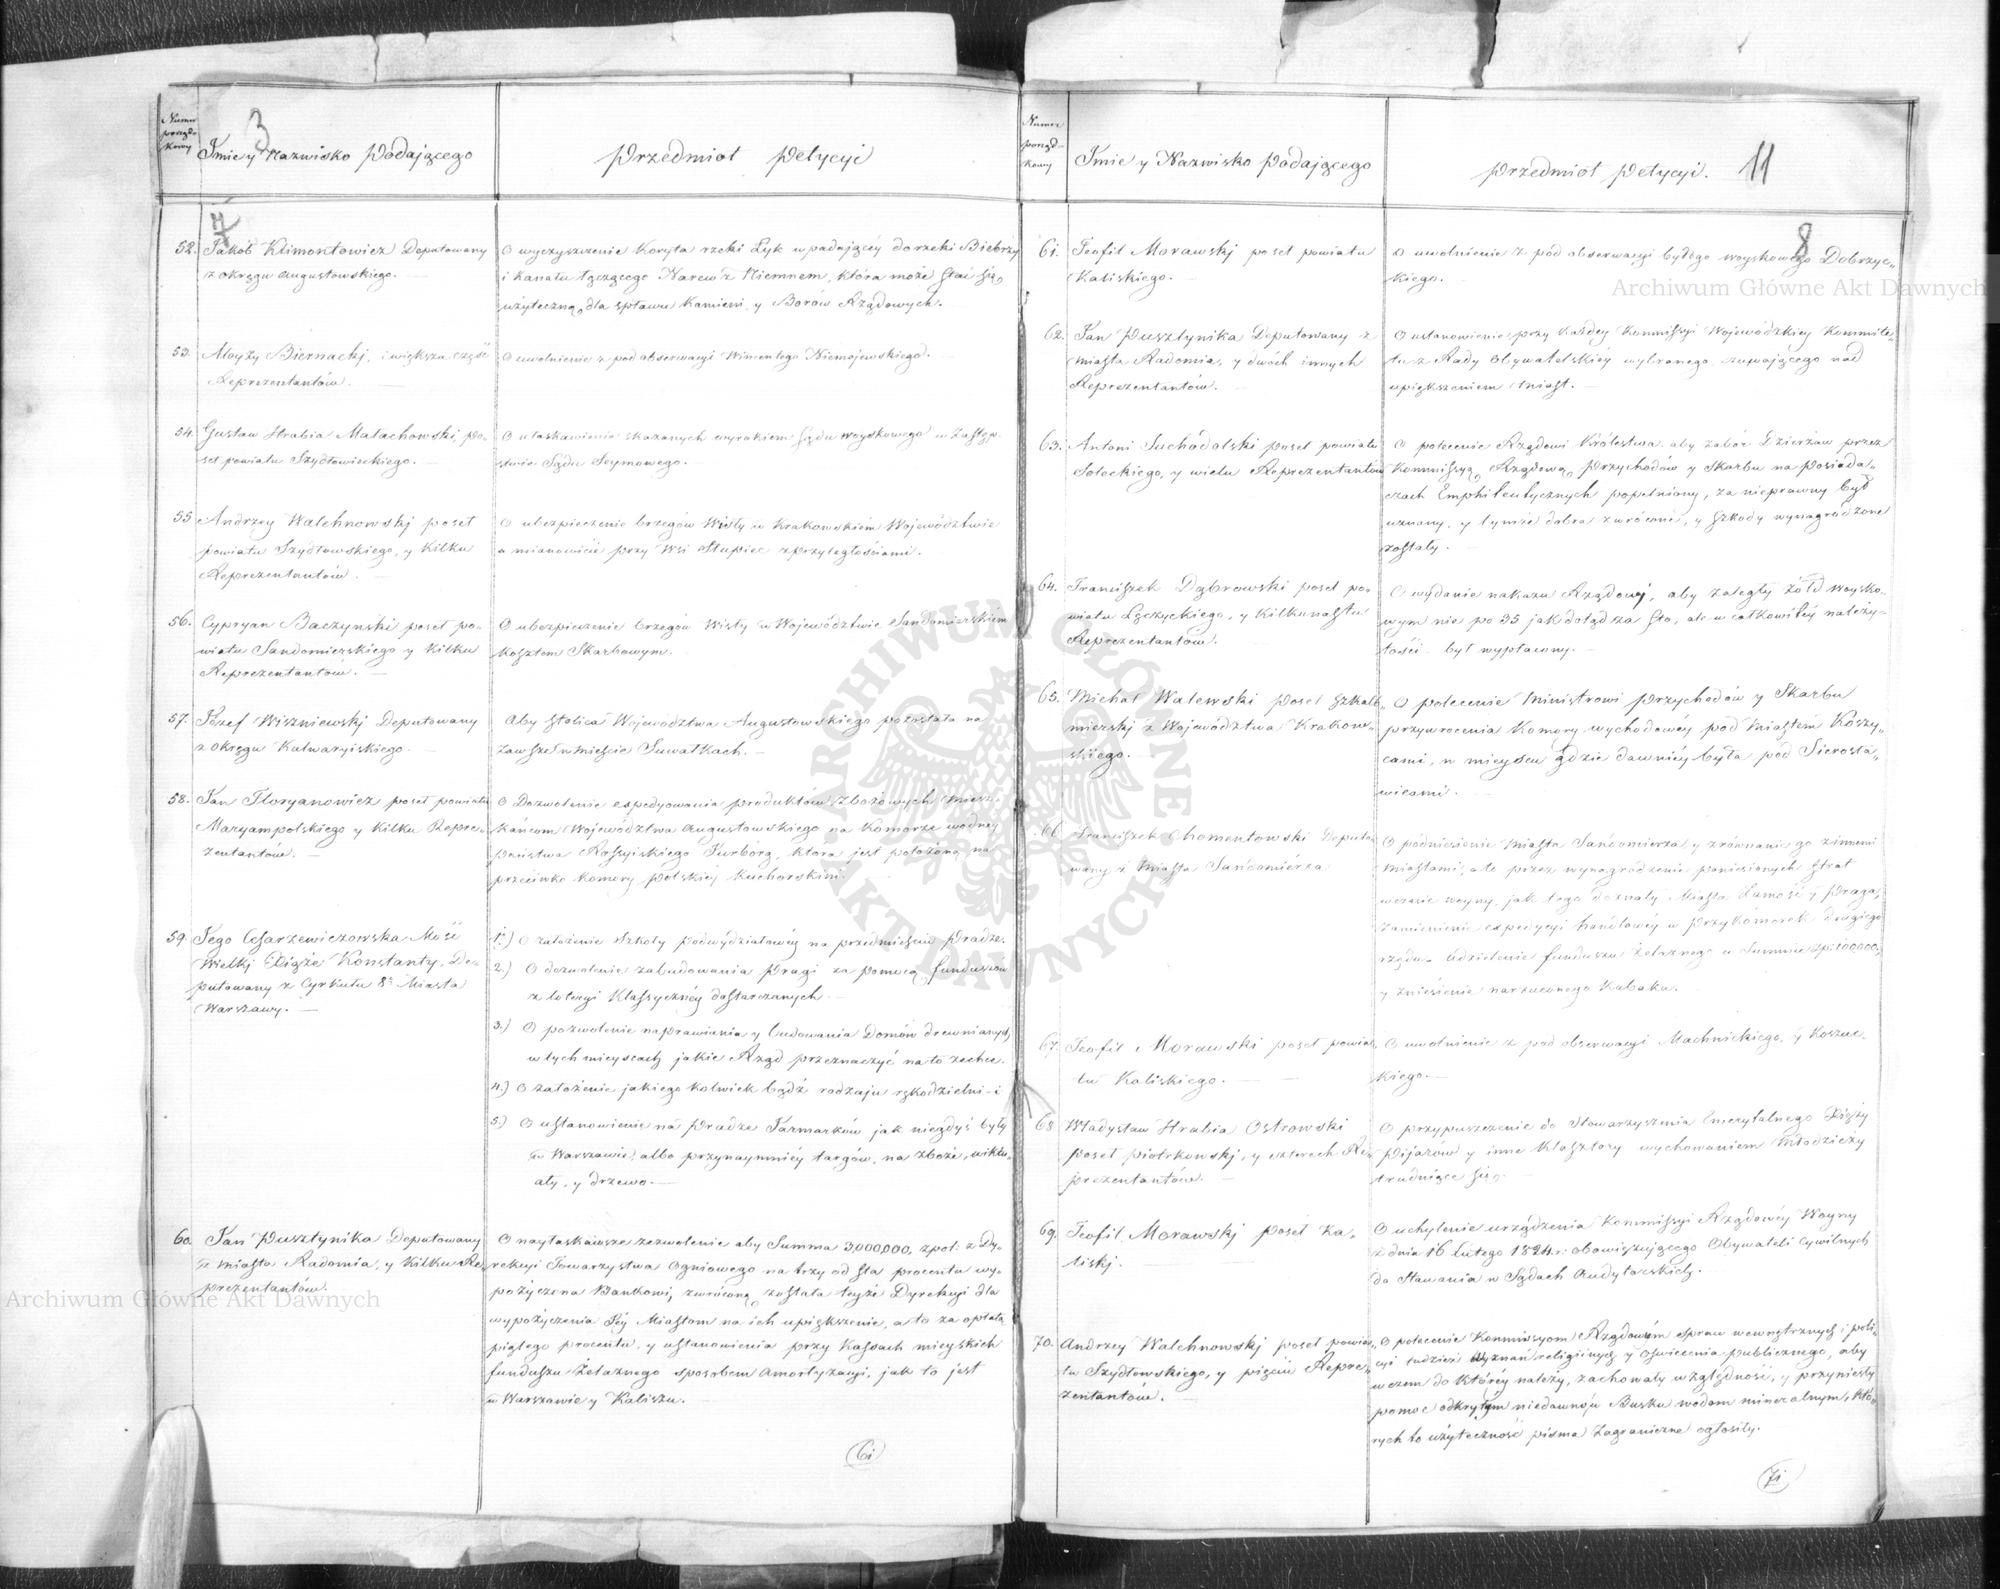 3
Numer
porząd-
kowy
Imie y Nazwisko Podającego
Przedmiot Petycyi
7
52. Jakób Klimontowicz Deputowany
z okręgu Augustowskiego. —
O wyczyszczenie Koryta rzeki Łyk wpadającéy do rzeki Biebrzy
i Kanału łączącego Narew z Niemnem, która może stać się
użyteczną dla spławu Kamieni, y Borów Rządowych. —
53. Aloyzy Biernackj, i większa część
Reprezentantów.
O uwolnienie z pod obserwacyi Wincentego Niemojewskiego. —
54. Gustaw Hrabia Małachowskj po-
seł powiatu Szydłowieckiego. —
O ułaskawienie skazanych wyrokiem Sądu woyskowego w Zastęp-
stwie Sądu Seymowego. —
55 Andrzey Walchnowskj poseł
powiatu Szydłowskiego, y Kilku
Reprezentantów. —
O ubezpieczenie brzegów Wisły w Krakowskiém Województwie
a mianowicie przy Wsi Słupiec z przyległościami. —
56. Cypryan Baczynski poseł po-
wiatu Sandomierskiego y Kilku
Reprezentantów. —
O ubezpieczenie brzegów Wisły w Województwie Sandomierskiem
Kosztem Skarbowym. —
57. Józef Wiszniewskj Deputowany
z okręgu Kalwaryiskiego. —
Aby stolica Województwa Augustowskiego pozostała na
zawsze w mieście Suwałkach. —
58. Jan Floryanowicz poseł powiatu
Maryampolskiego y Kilku Repre-
zentantów. —
O Dozwolenie expedyowania produktów Zbożowych miesz-
kańcom Województwa Augustowskiego na Komorze wodney
Państwa Rossyiskiego Jurborg, która jest położoną na
przeciwko Komory Polskiey Kuchorskini.
59. Jego Cesarzewiczowska Mość
Wielkj Xiąże Konstanty, De-
putowany z Cyrkułu 8o Miasta
Warszawy. —
1.) O założenie Szkoły Podwydziałowéy na przedmieściu Pradze.
2.) O dozwolenie zabudowania Pragi za pomocą funduszów
z loteryi Klassycznéy dostarczanych. —
3.) O pozwolenie naprawiania y budowania Domów drewnianych
w tych mieyscach jakie Rząd przeznaczyć na to zechce.
4.) O założenie jakiego kolwiek bądź rodzaju rękodzielni - i
5.) O ustanowienie na Pradze Jarmarków jak niegdyś były
w Warszawie, albo przynaymniéy targów, na zboże, wiktu-
ały, y drzewo. —
60. Jan Pusztynika Deputowany
z miasta Radomia, y Kilku Re-
prezentantów.
O nayłaskawsze zezwolenie aby Summa 3,000,000, złpol: z Dy-
rekcyi Towarzystwa Ogniowego na trzy od sta procentu wy-
pożyczona Bankowi, zwróconą została teyże Dyrekcyi dla
wypożyczenia Jéy Miastom na ich upiększenie, a to za opłatą
piątego procentu, y ustanowienia przy Kassach mieyskich
funduszu Żelaznego sposobem Amortyzacyi, jak to jest
w Warszawie y Kaliszu. —
6i
Numer
porząd-
kowy
Imie y Nazwisko Podającego
Przedmiot Petycyi.
11
8
61. Teofil Morawskj poseł powiatu
Kaliskiego. —
O uwolnienie z pód obserwacyi byłego woyskowego Dobrzyc-
kiego. —
62. Jan Pusztynika Deputowany z
Miasta Radomia, y dwóch innych
Reprezentantów. —
O ustanowienie przy każdey Kommissyi Wojewódzkiey Kommite-
tu z Rady Obywatelskiéy wybranego czuwającego nad
upiększeniem Miast. —
63. Antoni Suchodolski poseł powiatu
Soleckiego, y wielu Reprezentantów
O polecenie Rządowi Królestwa aby zabór Dzierżaw przez
Kommissyą Rządową Przychodów y Skarbu na Posiada-
czach Emphiteutycznych popełniony, za nieprawny był
uznany, y tymże dobra zwrócone, y szkody wynagrodzone
zostały. —
64. Franciszek Dąbrowski poseł po-
wiatu Łęczyckiego, y Kilkunastu
Reprezentantów. —
O wydanie nakazu Rządowi, aby zaległy żółd woysko-
wym nie po 35 jak dotąd za sto, ale w całkowitéy należy-
tości był wypłacony. —
65. Michał Walewski poseł Szkalb-
mierskj z Województwa Krakow-
skiego. —
O polecenie Ministrowi Przychodów y Skarbu
przywrócenia Komory wychodowéy pod Miastem Koszy-
cami, w mieyscu gdzie dawniéy była pod Sierosła-
wicami. —
66 Franciszek Chomentowski Deputo-
wany z Miasta Sandomiérza
O podniesienie Miasta Sandomierza y zrównanie go z innemi
Miastami, a to przez wynagrodzenie poniesionych strat
wczasie woyny, jak tego doznały Miasta Zamość y Praga,
Zamienienie expedycyi handlowéy w Przykómorek drugiego
rzędu. Udzielenie funduszu żelaznego w Summie zp: 100000,
y zniesienie narzuconego Kabaku. —
67. Teofil Morawski poseł powia-
tu Kaliskiego. —
O uwolnienie z pod obserwacyi Machnickiego, y Koszuc-
kiego. —
68 Władysław Hrabia Ostrowski
poseł Piotrkowskj, y czterech Re-
prezentantów. —
O przypuszczenie do Stowarzyszenia Emerytalnego Xięży
Pijarów y inne Klasztory wychowaniem Młodzieży
trudniące się. —
69. Teofil Morawskj Poseł Ka-
liskj. —
O uchylenie urządzenia Kommissyi Rządowéy Woyny
z dnia 16 Lutego 1824 r: obowiązującego Obywateli Cywilnych
do Stawania w Sądach Audytorskich. —
70. Andrzey Walchnowskj poseł powia-
tu Szydłowskiego, y pięciu Repre-
zentantów. —
O polecenie Kommissyom Rządowém spraw wewnętrznych i poli-
cyi tudzież Wyznań religijnych y Oświecenia publicznego, aby
w czem do któréy należy, zachowały względność, y przyniosły
pomoc odkrytym niedawno u Buska wodom mineralnym, któ-
rych to użyteczność pisma Zagraniczne ogłosiły.
7i
Archiwum Główne Akt Dawnych
Archiwum Główne Akt Dawnych
ARCHIWUM GŁÓWNE AKT DAWNYCH